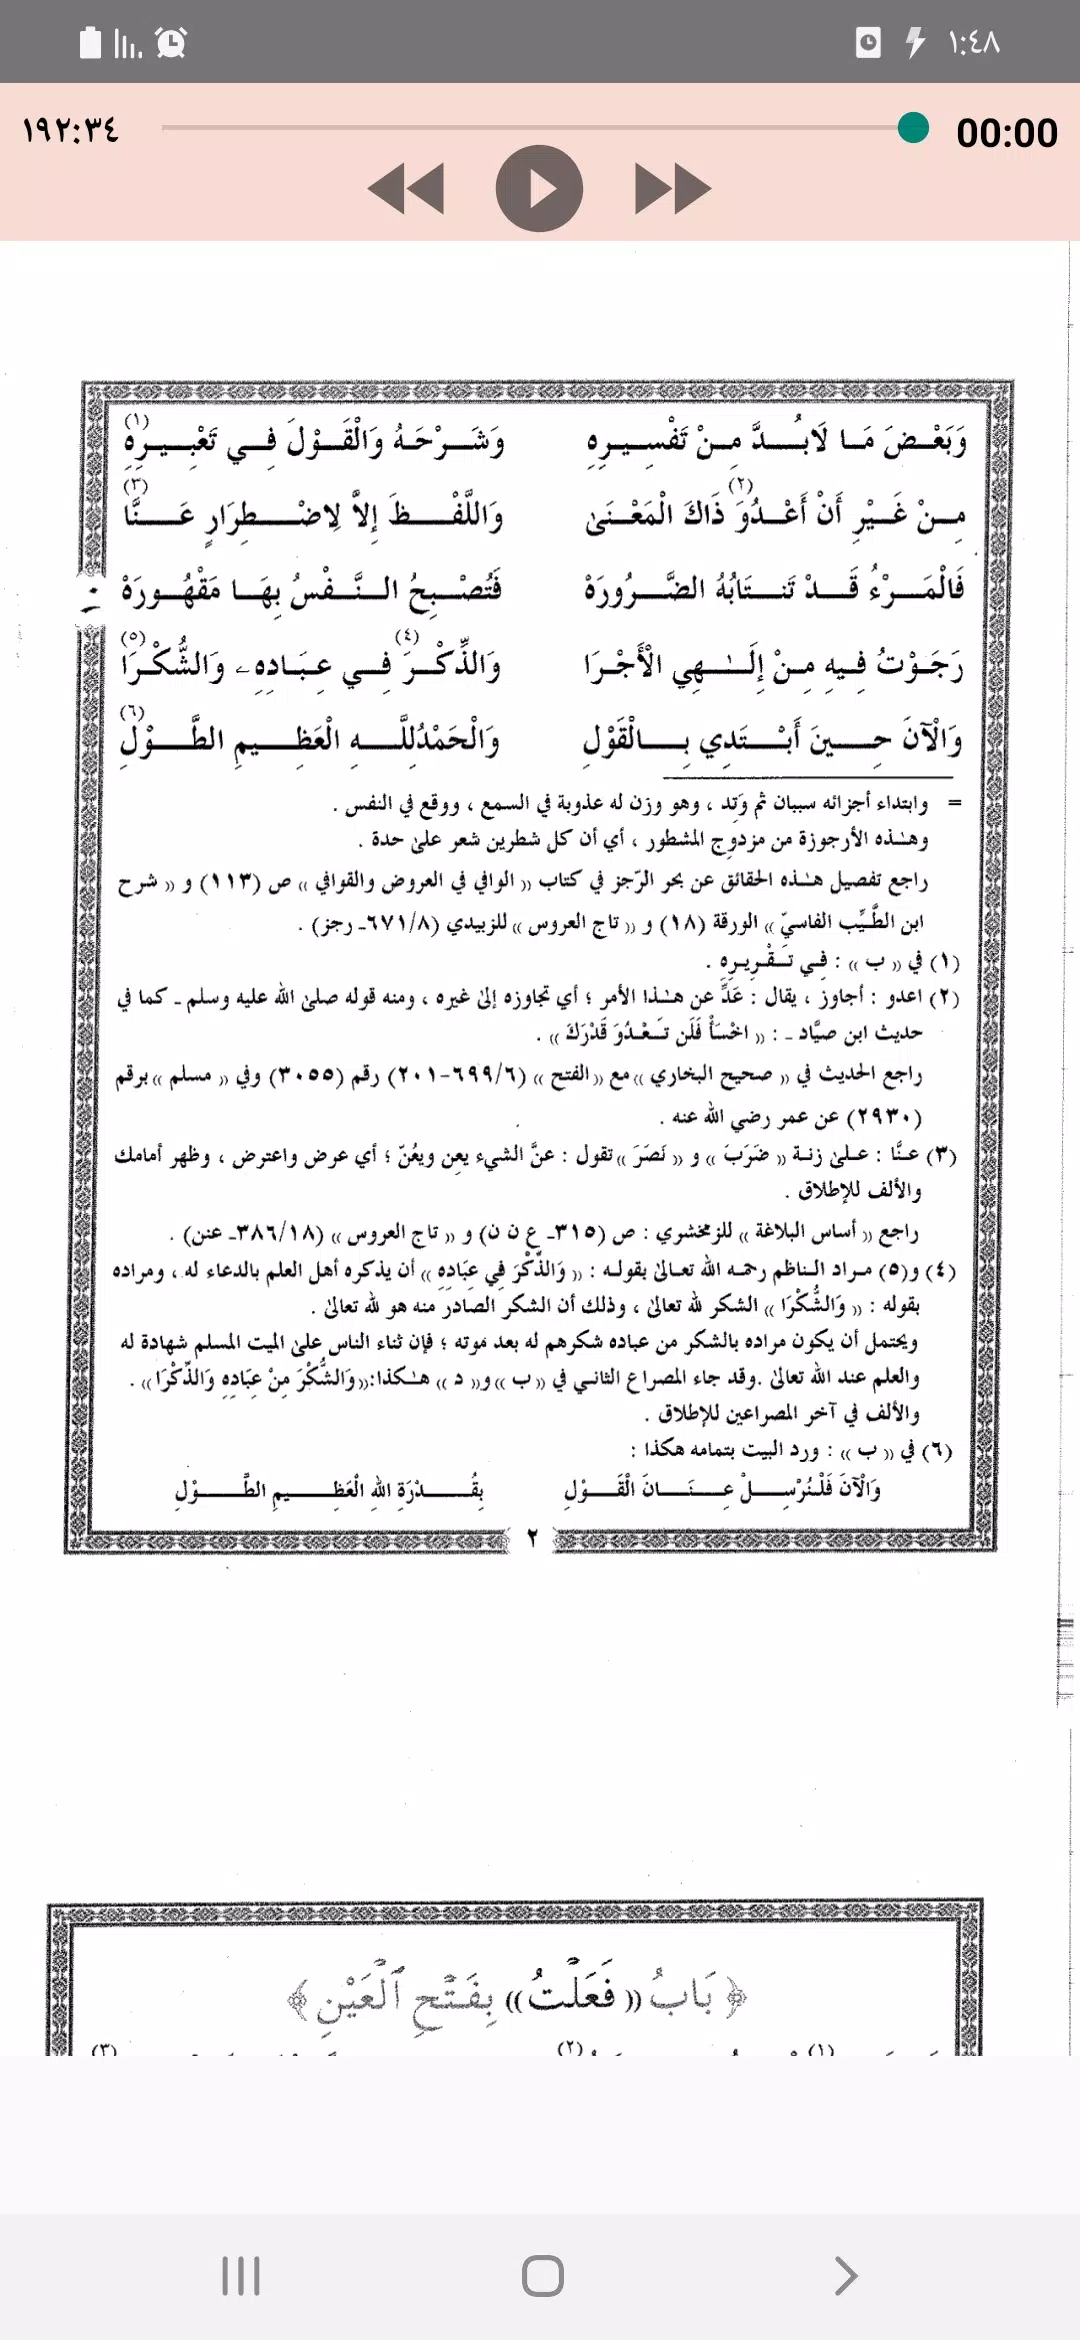 ١:٤٨
١٩٢:٣٤ 00:00
وَبَعْضَ مَا لَابُدَّ مِنْ تَفْسِيرِهِ وَشَرْحَهُ وَالْقَوْلَ فِي تَعْبِيرِهِ (١)
مِنْ غَيْرِ أَنْ أَعْدُوَ (٢) ذَاكَ الْمَعْنَىٰ وَاللَّفْظَ إِلاَّ لِاضْطِرَارٍ عَنَّا (٣)
فَالْمَرْءُ قَدْ تَنتَابُهُ الضَّرُورَهْ فَتُصْبِحُ النَّفْسُ بِهَا مَقْهُورَهْ
رَجَوْتُ فِيهِ مِنْ إِلَـٰهِي الْأَجْرَا وَالذِّكْرَ (٤) فِي عِبَادِهِۦ وَالشُّكْرَا (٥)
وَالْآنَ حِينَ أَبْتَدِي بِالْقَوْلِ وَالْحَمْدُلِلَّهِ الْعَظِيمِ الطَّوْلِ (٦)
= وابتداء أجزائه سببان ثم وَتِد ، وهو وزن له عذوبة في السمع ، ووقع في النفس .
وهـٰذه الأرجوزة من مزدوِج المشطور ، أي أن كل شطرين شعر علىٰ حدة .
راجع تفصيل هـٰذه الحقائق عن بحر الرّجز في كتاب (( الوافي في العروض والقوافي )) ص (١١٣) و (( شرح
ابن الطَّيِّب الفاسيّ )) الورقة (١٨) و (( تاج العروس )) للزبيدي (٦٧١/٨ـ رجز) .
(١) في (( ب )) : فِي تَقْرِيرِهِ .
(٢) اعدو : أجاوز ، يقال : عَدِّ عن هـٰذا الأمر ؛ أي تجاوزه إلىٰ غيره ، ومنه قوله صلىٰ الله عليه وسلم ـ كما في
حديث ابن صيَّاد ـ : (( اخْسَأْ فَلَن تَعْدُوَ قَدْرَكَ )) .
راجع الحديث في (( صحيح البخاري )) مع (( الفتح )) (٦٩٩/٦-٢٠١) رقم (٣٠٥٥) وفي (( مسلم )) برقم
(٢٩٣٠) عن عمر رضي الله عنه .
(٣) عـنَّا : علىٰ زنة (( ضَرَبَ )) و (( نَصَرَ )) تقول : عنَّ الشيء يعِن ويعُنّ ؛ أي عرض واعترض ، وظهر أمامك
والألف للإطلاق .
راجع (( أساس البلاغة )) للزمخشري : ص (٣١٥ـ ع ن ن) و (( تاج العروس )) (٣٨٦/١٨ـ عنن) .
(٤) و(٥) مراد الناظم رحمه الله تعالىٰ بقوله : (( وَالذِّكْرَ فِي عِبَادِهِ )) أن يذكره أهل العلم بالدعاء له ، ومراده
بقوله : (( وَالشُّكْرَا )) الشكر لله تعالىٰ ، وذلك أن الشكر الصادر منه هو لله تعالىٰ .
ويحتمل أن يكون مراده بالشكر من عباده شكرهم له بعد موته ؛ فإن ثناء الناس علىٰ الميت المسلم شهادة له
والعلم عند الله تعالىٰ .وقد جاء المصراع الثاني في (( ب )) و(( د )) هـٰكذا:(( وَالشُّكْرَ مِنْ عِبَادِهِ وَالذِّكْرَا )) .
والألف في آخر المصراعين للإطلاق .
(٦) في (( ب )) : ورد البيت بتمامه هكذا :
وَالْآنَ فَلْنُرْسِلْ عِنَانَ الْقَوْلِ بِقُدْرَةِ اللهِ الْعَظِيمِ الطَّوْلِ
٢
﴿ بَابُ (( فَعَلْتُ )) بِفَتْحِ الْعَيْنِ ﴾
(١) (٢) (٣)